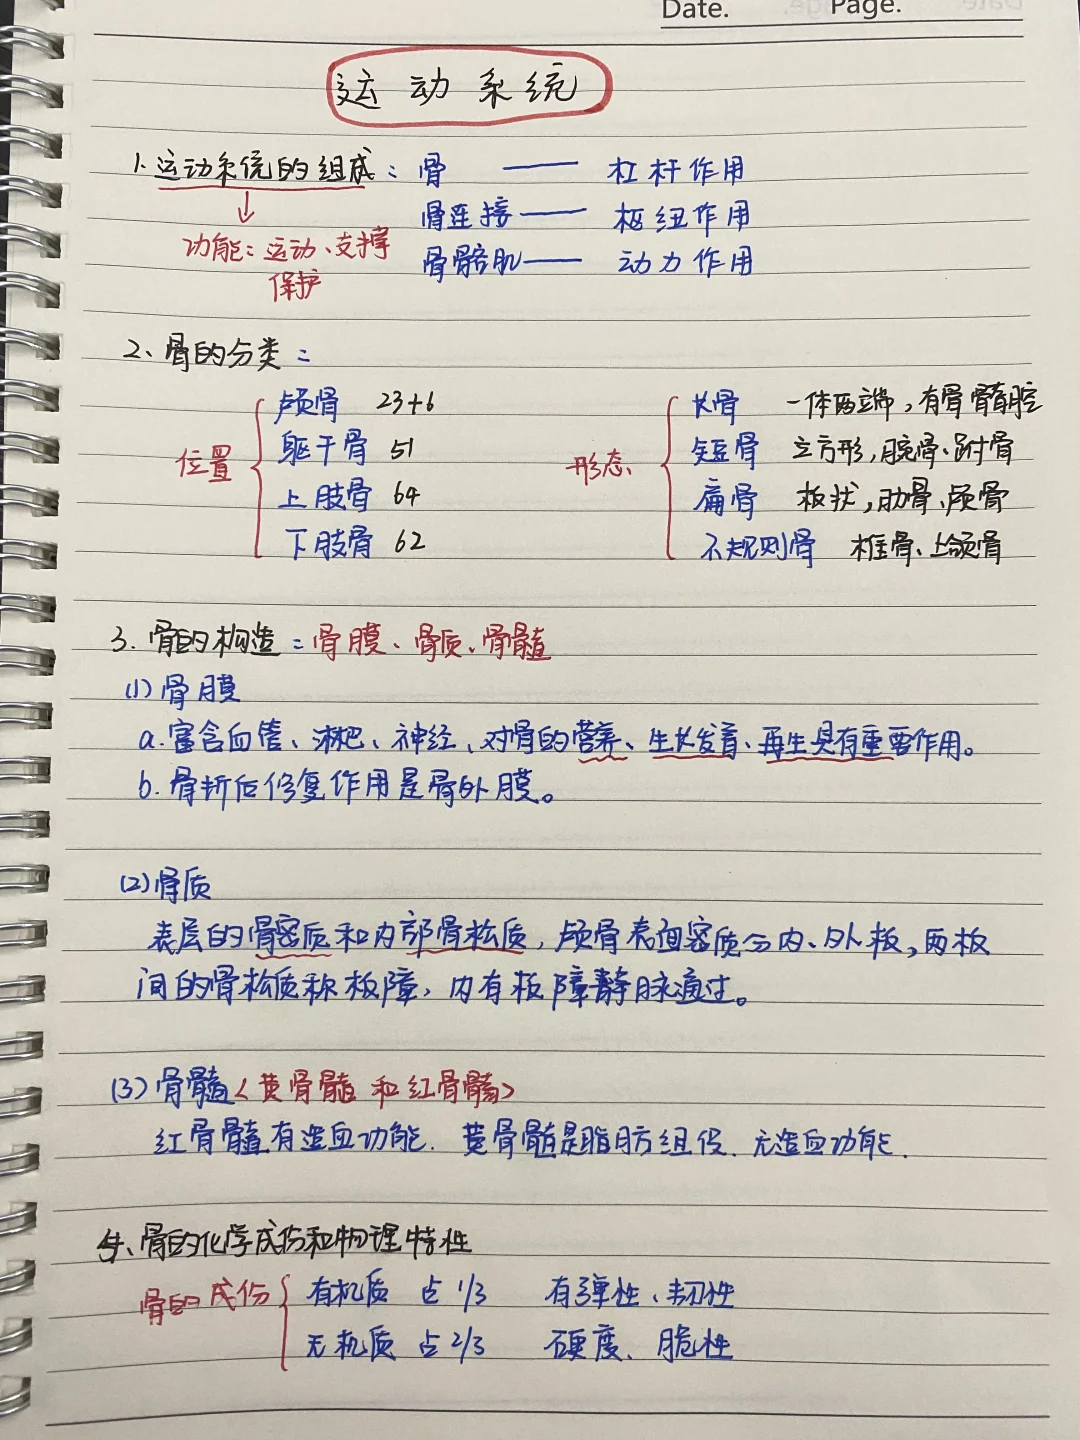 Date. Page.
运动系统
1. 运动系统的组成：骨 —— 杠杆作用
骨连接 —— 枢纽作用
功能：运动、支撑
保护
骨骼肌 —— 动力作用
2、骨的分类：
位置
颅骨 23+6
躯干骨 51
上肢骨 64
下肢骨 62
形态
长骨 一体两端，有骨髓腔
短骨 立方形，腕骨、跗骨
扁骨 板状，肋骨、颅骨
不规则骨 椎骨、上颌骨
3. 骨的构造：骨膜、骨质、骨髓
(1) 骨膜
a. 富含血管、淋巴、神经，对骨的营养、生长发育、再生具有重要作用。
b. 骨折后修复作用是骨外膜。
(2) 骨质
表层的骨密质和内部骨松质，颅骨表面密质分内、外板，两板
间的骨松质称板障，内有板障静脉通过。
(3) 骨髓〈黄骨髓和红骨髓〉
红骨髓有造血功能. 黄骨髓是脂肪组织. 无造血功能.
4、骨的化学成份和物理特性
骨的成份
有机质 占1/3 有弹性、韧性
无机质 占2/3 硬度、脆性